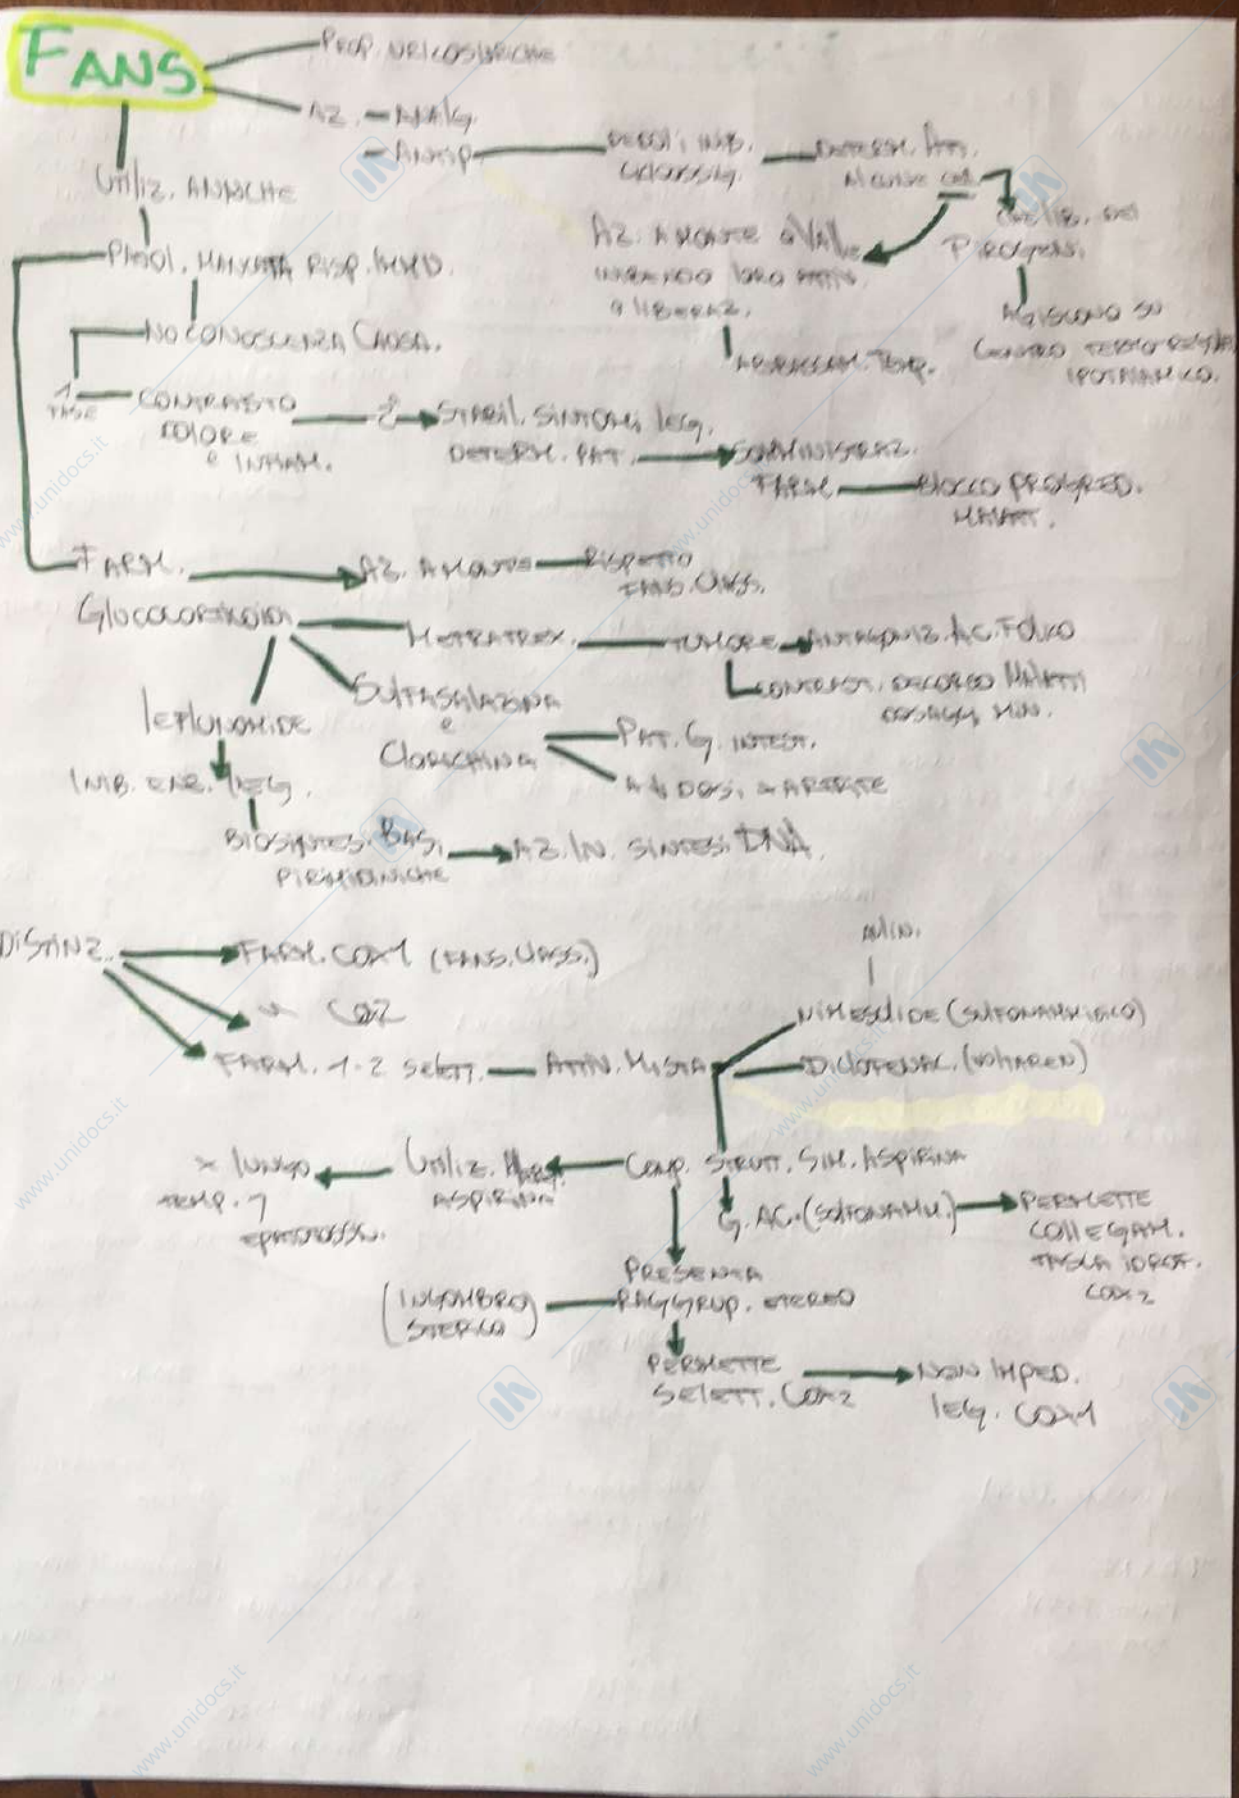 FANS
PROP. URICOSURICHE
AZ. - ANALG.
- ANTIP.
DEBOLI INIB.
CICLOSSIG.
DETERM. ATTI.
ALCUNE CELL.
CHE LIB. DEI
PIROGENI.
AGISCONO SU
CENTRO TERMOREGOL
IPOTALAMICO.
AZ. A MONTE
INIBENDO LORO ATTIV.
O LIBERAZ.
ABBASSAM. TEMP.
UTILIZ. ANCHE
PATOL. MANCATA RISP. IMMU.
NO CONOSCENZA CAUSA.
1
FASE
CONTRASTO
DOLORE
e INFIAM.
2
STABIL. SINTOMI LEG.
DETERM. PAT.
SOMMINISTRAZ.
FARM.
BLOCCO PROGRED.
MALATT.
FARM.
AZ. A MONTE
RISPETTO
FANS. CLASS.
GLUCOCORTICOIDI
METRATREX.
TUMORE
ANTAGONIZ. AC. FOLICO
CONTRAST. DECORSO MALATTI
DOSAGG. MIN.
LEFLUNOMIDE
SULFASALAZINA
e
CLOROCHINA
PAT. G. INTEST.
A ↓ DOSI x ARTRITE
INIB. ENZ. LEG.
BIOSINTESI BASI
PIRIMIDINICHE
AZ. IN. SINTESI DNA.
DISTINZ.
FARM. COX1 (FANS. CLASS.)
" COX2
FARM. 1-2 SELETT.
ATTIV. MISTA
AULIN.
NIMESULIDE (SULFONAMMIDICO)
DICLOFENAC. (VOLTAREN)
COMP. STRUTT. SIM. ASPIRINA
UTILIZ.
ASPIRINA
x LUNGO
TEMP. ↑
EPATOTOSSIC.
G. AC. (SOLFONAMM.)
PERMETTE
COLLEGAM.
TASCA IDROF.
COX2
PRESENTA
RAGGRUP. ETEREO
(INGOMBRO
STERICO)
PERMETTE
SELETT. COX2
NON IMPED.
LEG. COX1
www.unidocs.it
www.unidocs.it
www.unidocs.it
www.unidocs.it
www.unidocs.it
www.unidocs.it